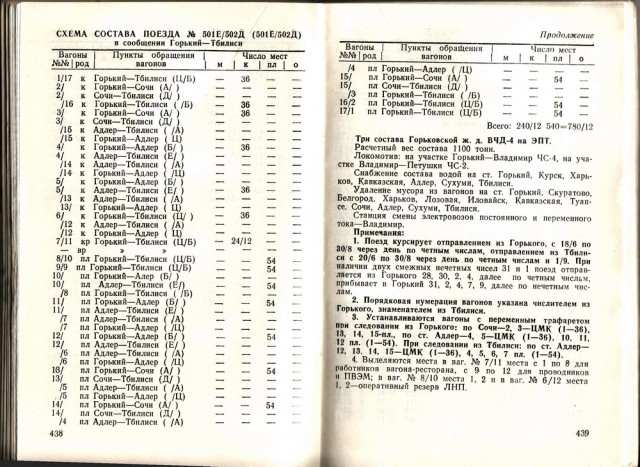 СХЕМА СОСТАВА ПОЕЗДА № 501Е/502Д (501Е/502Д)
в сообщении Горький—Тбилиси
Вагоны Пункты обращения Число мест
№№ род вагонов м к пл о
1/17 к Горький—Тбилиси (Ц/Б) — 36 — —
2/ к Горький—Сочи (А/ ) — — — —
2/ к Сочи—Тбилиси (Д/ ) — — — —
/16 к Горький—Тбилиси ( /Б) — 36 — —
3/ к Горький—Сочи (А/ ) — 36 — —
3/ к Сочи—Тбилиси (Д/ ) — — — —
/15 к Адлер—Тбилиси ( /А) — — — —
/15 к Горький—Адлер ( /Ц) — — — —
4/ к Горький—Адлер (Б/ ) — 36 — —
4/ к Адлер—Тбилиси (Е/ ) — — — —
/14 к Адлер—Тбилиси ( /А) — — — —
/14 к Горький—Адлер ( /Ц) — — — —
5/ к Горький—Адлер (Б/ ) — — — —
5/ к Адлер—Тбилиси (Е/ ) — 36 — —
/13 к Адлер—Тбилиси ( /А) — — — —
13/ к Горький—Адлер ( /Ц) — — — —
6/ к Горький—Тбилиси (Ц/ ) — 36 — —
/12 к Адлер—Тбилиси ( /А) — — — —
/12 к Горький—Адлер ( /Ц) — — — —
7/11 кр Горький—Тбилиси (Ц/Б) — 24/12 — —
— вр » » — — — —
8/10 пл Горький—Тбилиси (Ц/Б) — — 54 —
9/9 пл Горький—Тбилиси (Ц/Б) — — 54 —
10/ пл Горький—Алер (Б/ ) — — — —
10/ пл Адлер—Тбилиси (Е/ ) — — 54 —
/8 пл Горький—Тбилиси ( /Б) — — — —
11/ пл Горький—Адлер (Б/ ) — — 54 —
11/ пл Адлер—Тбилиси (Е/ ) — — — —
/7 пл Адлер—Тбилиси ( /А) — — — —
/7 пл Горький—Адлер ( /Ц) — — — —
12/ пл Горький—Адлер (Б/ ) — — 54 —
12/ пл Адлер—Тбилиси (Е/ ) — — — —
/6 пл Адлер—Тбилиси ( /А) — — — —
/6 пл Горький—Адлер ( /Ц) — — — —
13/ пл Горький—Сочи (А/ ) — — 54 —
13/ пл Сочи—Тбилиси (Д/ ) — — — —
/5 пл Адлер—Тбилиси ( /А) — — — —
/5 пл Горький—Адлер ( /Ц) — — — —
14/ пл Горький—Сочи (А/ ) — — 54 —
14/ пл Сочи—Тбилиси (Д/ ) — — — —
/4 пл Адлер—Тбилиси ( /А) — — — —
438
Продолжение
Вагоны Пункты обращения Число мест
№№ род вагонов м к пл о
/4 пл Горький—Адлер ( /Ц) — — — —
15/ пл Горький—Сочи (А/ ) — — 54 —
15/ пл Сочи—Тбилиси (Д/ ) — — — —
/3 пл Горький—Тбилиси ( /Б) — — — —
16/2 пл Горький—Тбилиси (Ц/Б) — — 54 —
17/1 пл Горький—Тбилиси (Ц/Б) — — 54 —
Всего: 240/12 540=780/12
Три состава Горьковской ж. д. ВЧД-4 на ЭПТ.
Расчетный вес состава 1100 тонн.
Локомотив: на участке Горький—Владимир ЧС-4, на уча-
стке Владимир—Петушки ЧС-2.
Снабжение состава водой на ст. Горький, Курск, Харь-
ков, Кавказская, Адлер, Сухуми, Тбилиси.
Удаление мусора из вагонов на ст. Горький, Скуратово,
Белгород, Харьков, Лозовая, Иловайск, Кавказская, Туап-
се, Сочи, Адлер, Сухуми, Тбилиси.
Станция смены электровозов постоянного и переменного
тока—Владимир.
Примечания:
1. Поезд курсирует отправлением из Горького, с 18/6 по
30/8 через день по четным числам, отправлением из Тбили-
си с 20/6 по 30/8 через день по четным числам и 1/9. При
наличии двух смежных нечетных чисел 31 и 1 поезд отправ-
ляется из Горького 28, 30, 2, 4, далее по четным числам,
прибывает в Горький 31, 2, 4, 7, 9, далее по нечетным чис-
лам.
2. Порядковая нумерация вагонов указана числителем из
Горького, знаменателем из Тбилиси.
3. Устанавливаются вагоны с переменным трафаретом
при следовании из Горького: по Сочи—2, 3—ЦМК (1—36),
13, 14, 15-пл., по ст. Адлер—4, 5—ЦМК (1—36), 10, 11,
12 пл. (1—54). При следовании из Тбилиси: по ст. Адлер—
12, 13, 14, 15—ЦМК (1—36), 4, 5, 6, 7 пл. (1—54).
4. Выделяются места в ваг. № 7/11 места с 1 по 8 для
работников вагона-ресторана, с 9 по 12 для проводников
и ПВЭМ; в ваг. № 8/10 места 1, 2 и в ваг. № 6/12 места
1, 2—оперативный резерв ЛНП.
439